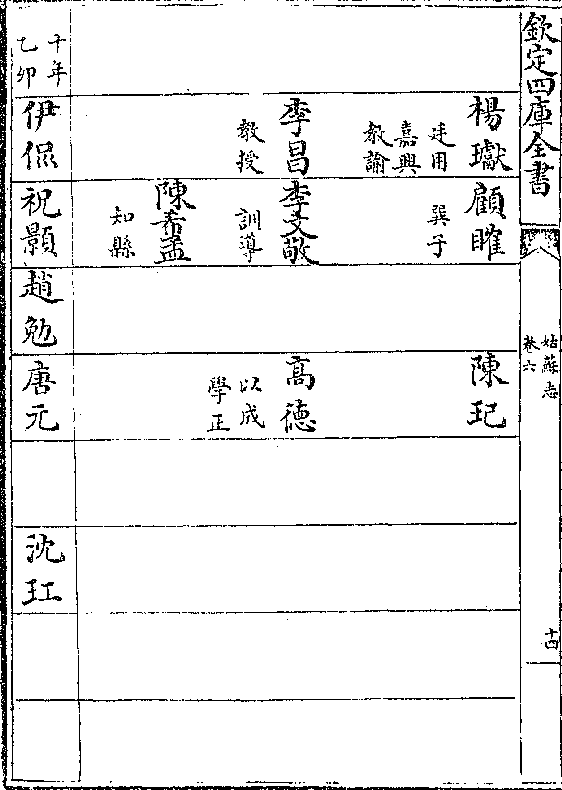 欽定四庫全書
姑蘇志
卷六
十四
楊瓛
廷用
嘉興
教諭
李昌
教授
顧睢
巽子
李文敬
訓導
陳希孟
知縣
陳玘
高德
以成
學正
十年
乙卯
伊侃
祝顥
趙勉
唐元
沈玒